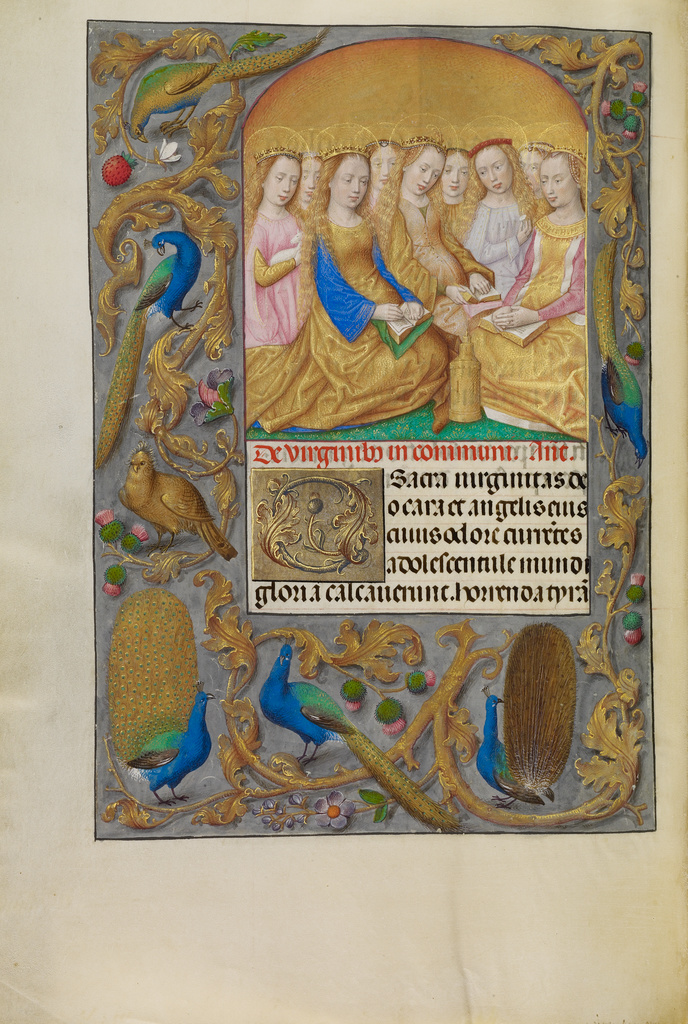 De virginibꝰ in communi. Ane.
Sacra uirginitas de
o cara et angelis eius
cuius odore currẽtes
adolescentule mundi
gloria calcauerunt. horrenda tyrã